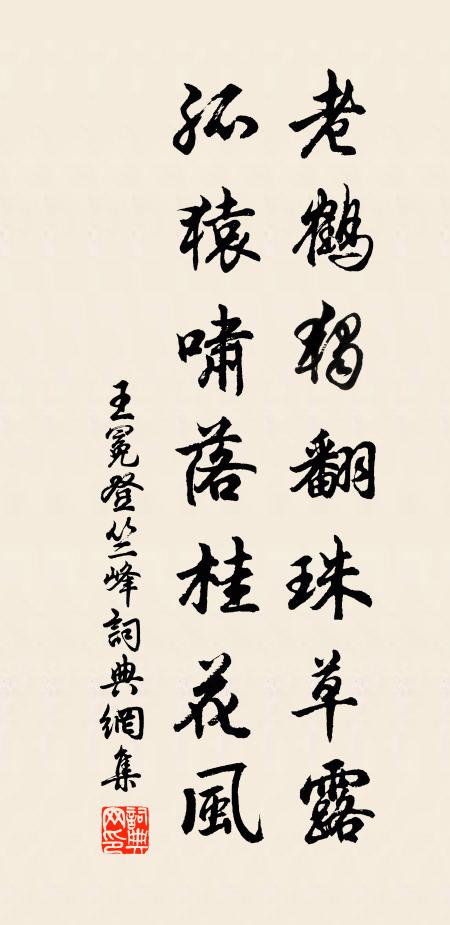 老鶴獨翻珠草露
孤猿嘯落桂花風
王冕登竺峰詞典網集
詞典網印